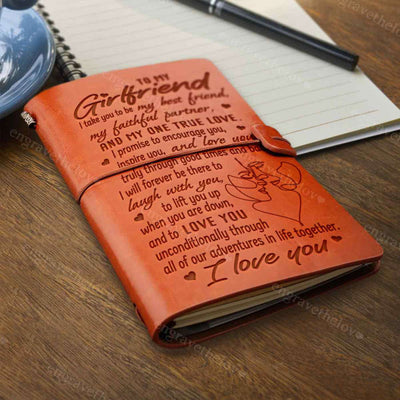 TO MY
Girlfriend
I take you to be my best friend,
my faithful partner,
AND MY ONE TRUE LOVE.
I promise to encourage you,
inspire you, and love you
truly through good times and bad
I will forever be there to
laugh with you,
to lift you up
when you are down,
and to LOVE YOU
unconditionally through
all of our adventures in life together.
I love you
engravethelove